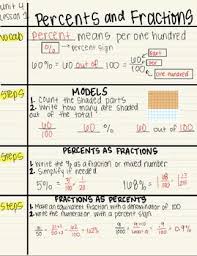 Unit 4
Lesson 1
Percents and Fractions
vocab
percent means per one hundred
% → percent sign
60% = 60 out of 100 = 60/100
part
per
one hundred
steps
MODELS
1. Count the shaded parts
2. Write how many are shaded
out of the total
60/100
60%
60 out of 100
steps
PERCENTS AS FRACTIONS
1. Write the % as a fraction or mixed number
2. Simplify if needed
5% =
168% =
steps
FRACTIONS AS PERCENTS
1. Make an equivalent fraction with a denominator of 100
2. Write the numerator with a percent sign